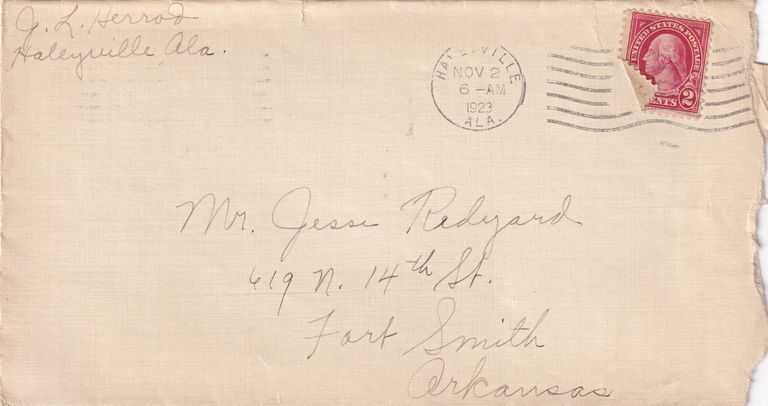 J. L. Herrod
Haleyville, Ala.
HALEYVILLE
NOV 2
6 -AM
1923
ALA.
UNITED STATES POSTAGE
CENTS 2
Mr. Jesse Redyard
619 N. 14th St.
Fort Smith
Arkansas